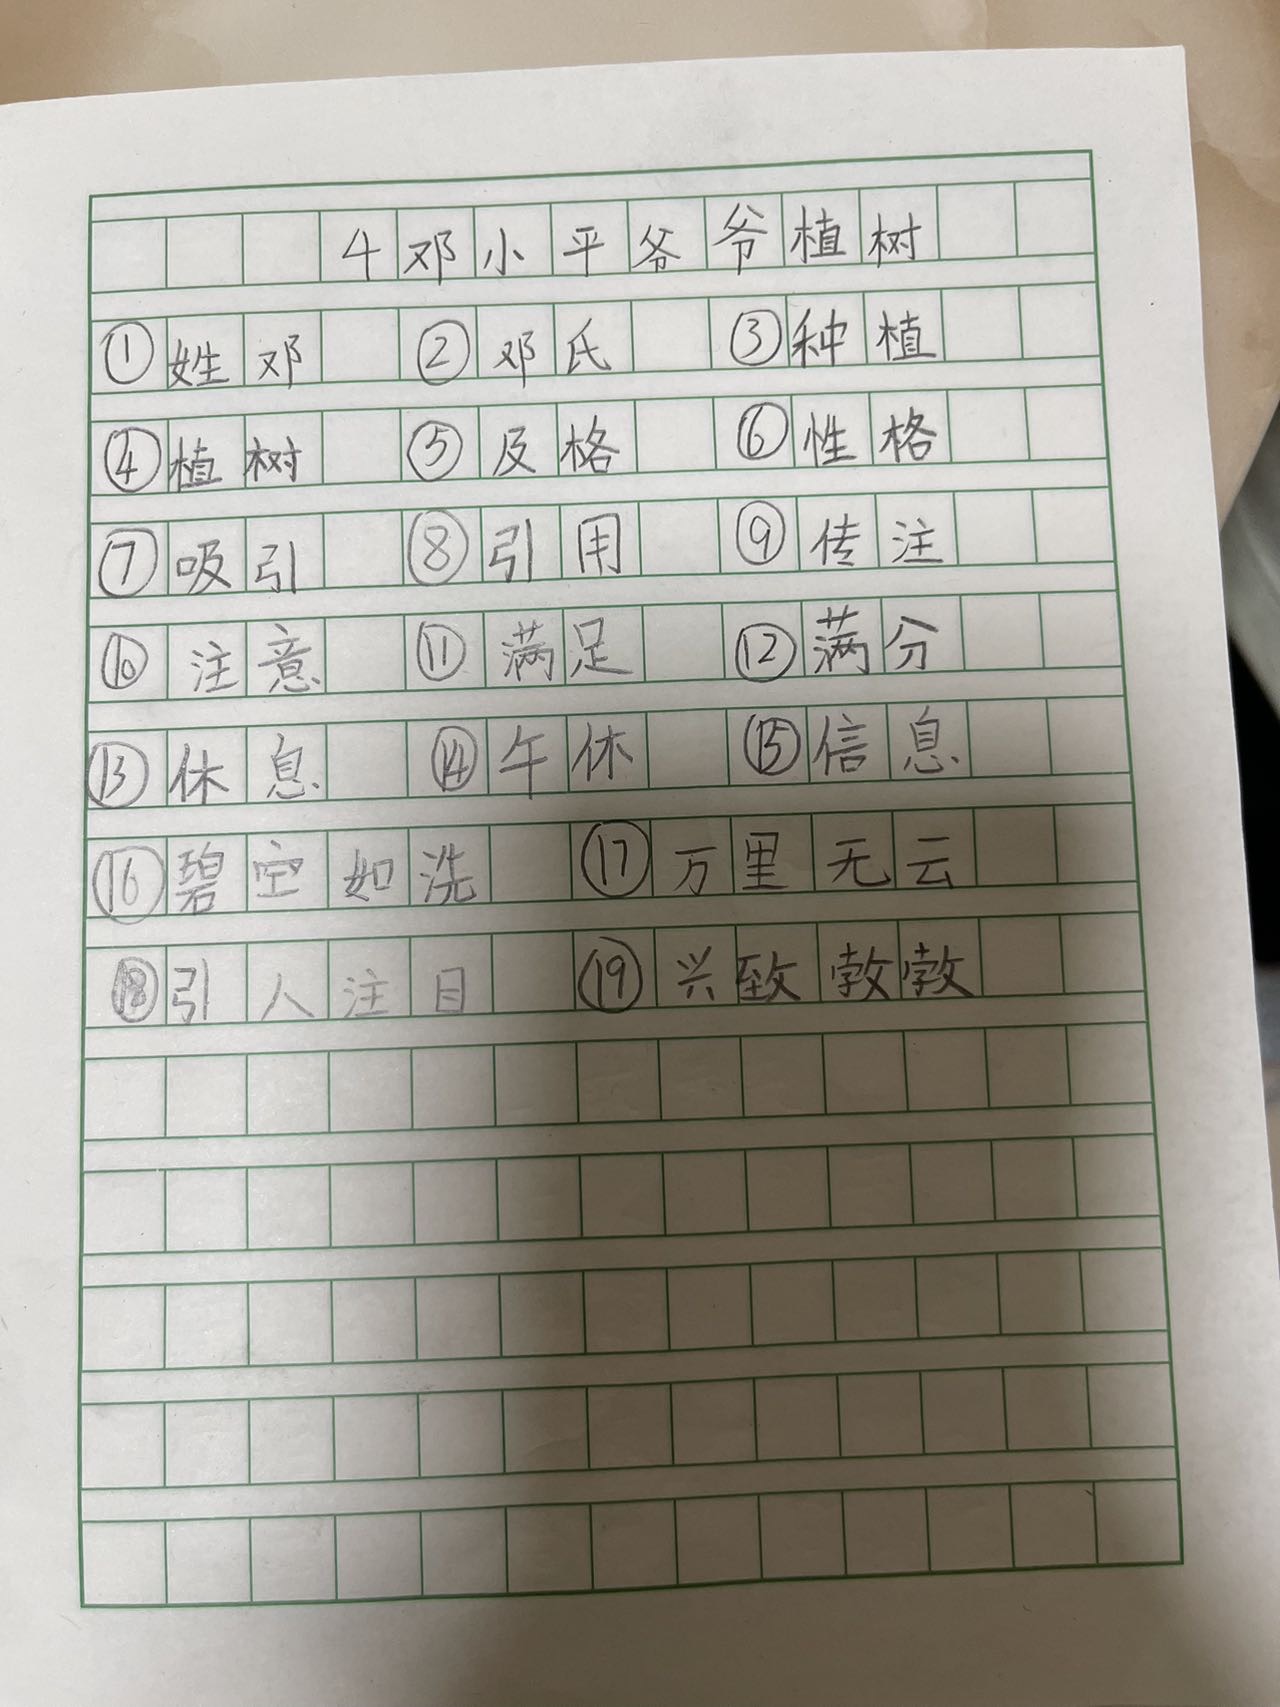 4邓小平爷爷植树
①姓邓 ②邓氏 ③种植
④植树 ⑤及格 ⑥性格
⑦吸引 ⑧引用 ⑨传注
⑩注意 ⑪满足 ⑫满分
⑬休息 ⑭午休 ⑮信息
⑯碧空如洗 ⑰万里无云
⑱引人注目 ⑲兴致勃勃